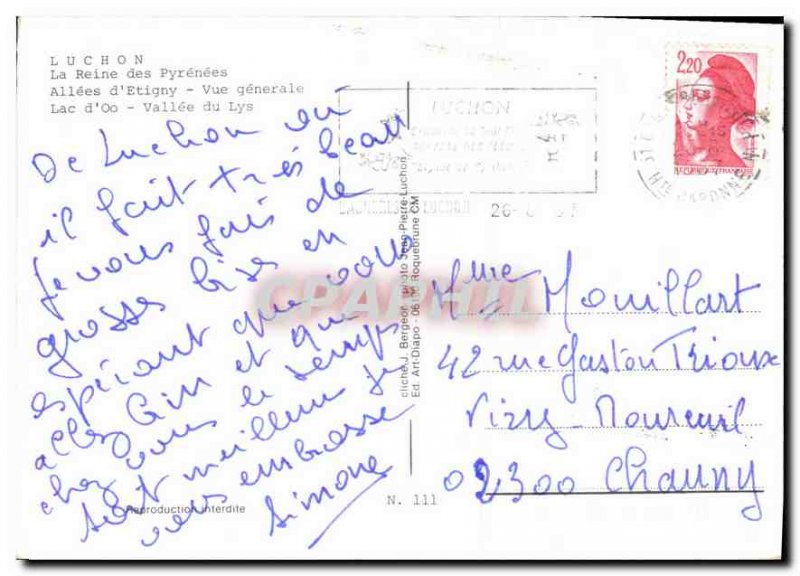 LUCHON
La Reine des Pyrénées
Allées d'Etigny - Vue génerale
Lac d'Oo - Vallée du Lys
De Luchon ou
il fait très beau
je vous fais de
grosses bises en
espérant que vous
allez bien et que
chez vous le temps
soit meilleur je
vous embrasse
Simone
Reproduction interdite
N. 111
cliché J. Bergeon photo Jean-Pierre-Luchon
Ed. Art-Diapo - 06190 Roquebrune CM
LUCHON
26-
2,20
HTE GARONNE
CPAPHIL
Mme Mouillart
42 rue Gaston Trioux
Viry-Noureuil
02300 Chauny